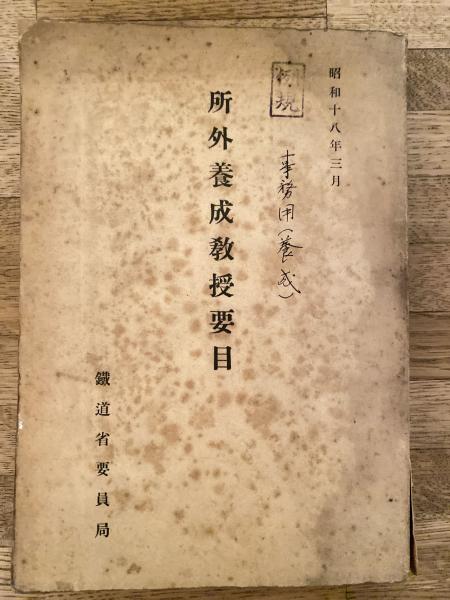 昭和十八年三月
例規
事務用（養成）
所外養成教授要目
鐵道省要員局